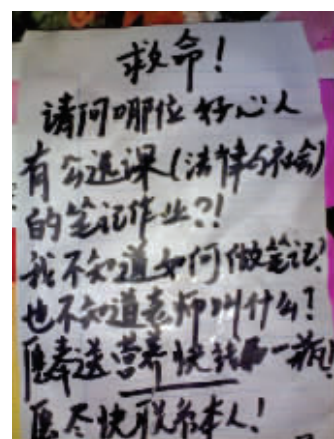 救命!
请问哪位好心人
有公选课(法律与社会)
的笔记作业?!
我不知道如何做笔记?
也不知道老师叫什么?
愿奉送营养快线一瓶!
愿尽快联系本人!